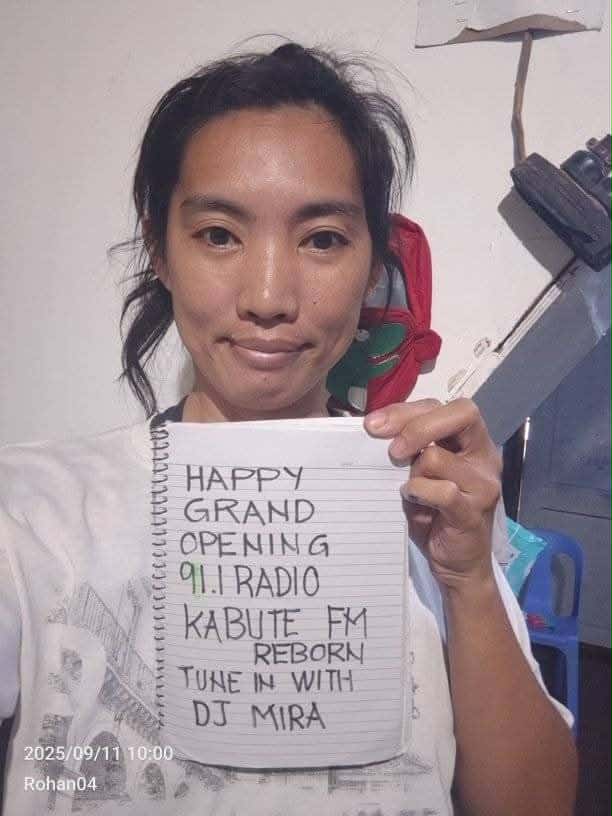 HAPPY
GRAND
OPENING
91.1 RADIO
KABUTE FM
REBORN
TUNE IN WITH
DJ MIRA
2025/09/11 10:00
Rohan04